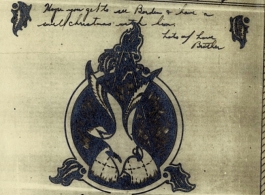 Hope you get to see Borden & have a
swell Christmas with him.
Lots of Love,
Brother